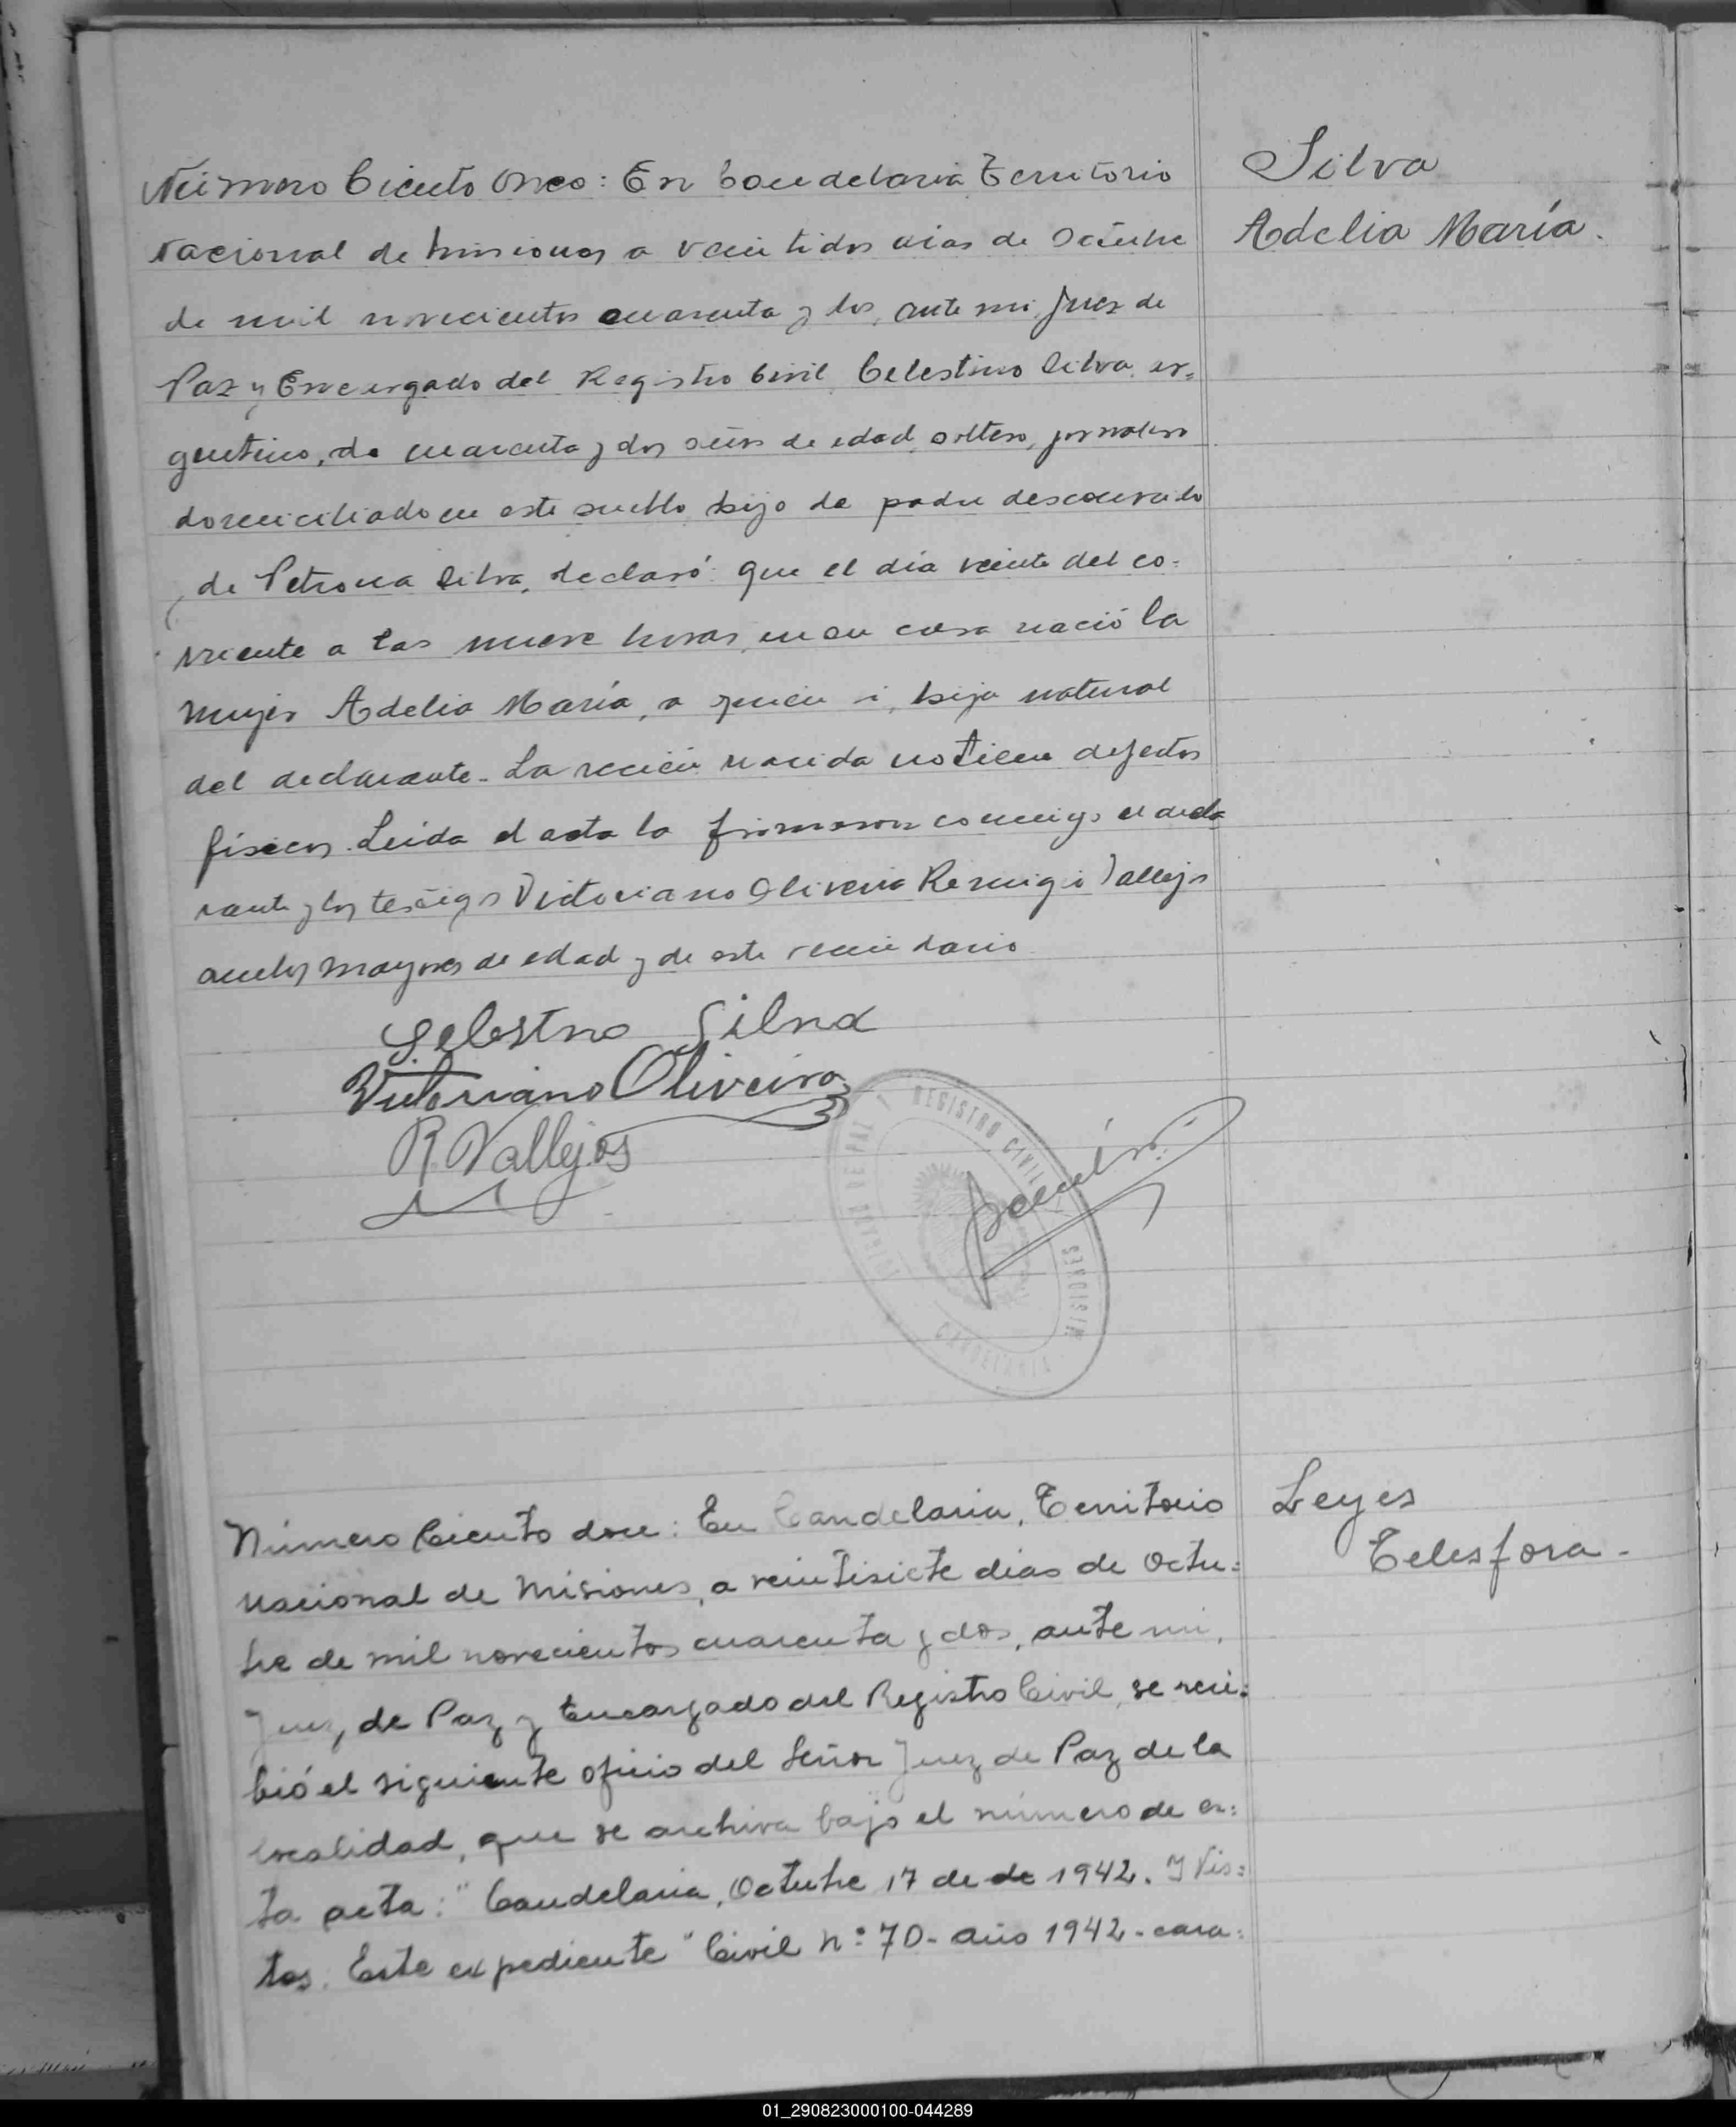 Silva
Adelia María.
Número Ciento Once: En Candelaria Territorio
Nacional de Misiones a veintidos dias de Octubre
de mil novecientos cuarenta y dos, ante mi, Juez de
Paz y Encargado del Registro Civil, Celestino Silva, ar=
gentino, de cuarenta y dos años de edad, soltero, jornalero
domiciliado en este pueblo, hijo de padre desconocido
y de Petrona Silva, declaró: que el día veinte del co=
rriente a las nueve horas, en su casa nació la
mujer Adelia María, a quien vi, hija natural
del declarante. La recién nacida no tiene defectos
físicos. Leida el acta la firmaron conmigo el decla
rante y los testigos Victoriano Oliveira Remigio Vallejos
ambos mayores de edad y de este vecindario
Selestno Silva
Victoriano Oliveira
R. Vallejos
REGISTRO CIVIL
DE PAZ
MISIONES
CANDELARIA
Leyes
Telesfora.
Número Ciento doce: En Candelaria, Territorio
Nacional de Misiones, a veintisiete dias de Octu=
bre de mil novecientos cuarenta y dos, ante mi,
Juez de Paz y Encargado del Registro Civil, se reci=
bió el siguiente oficio del Señor Juez de Paz de la
localidad, que se archiva bajo el número de es=
ta acta: "Candelaria, Octubre 17 de de 1942. Y Vis=
tos. Este expediente "Civil Nº 70 - Año 1942 - cara=
01_290823000100-044289